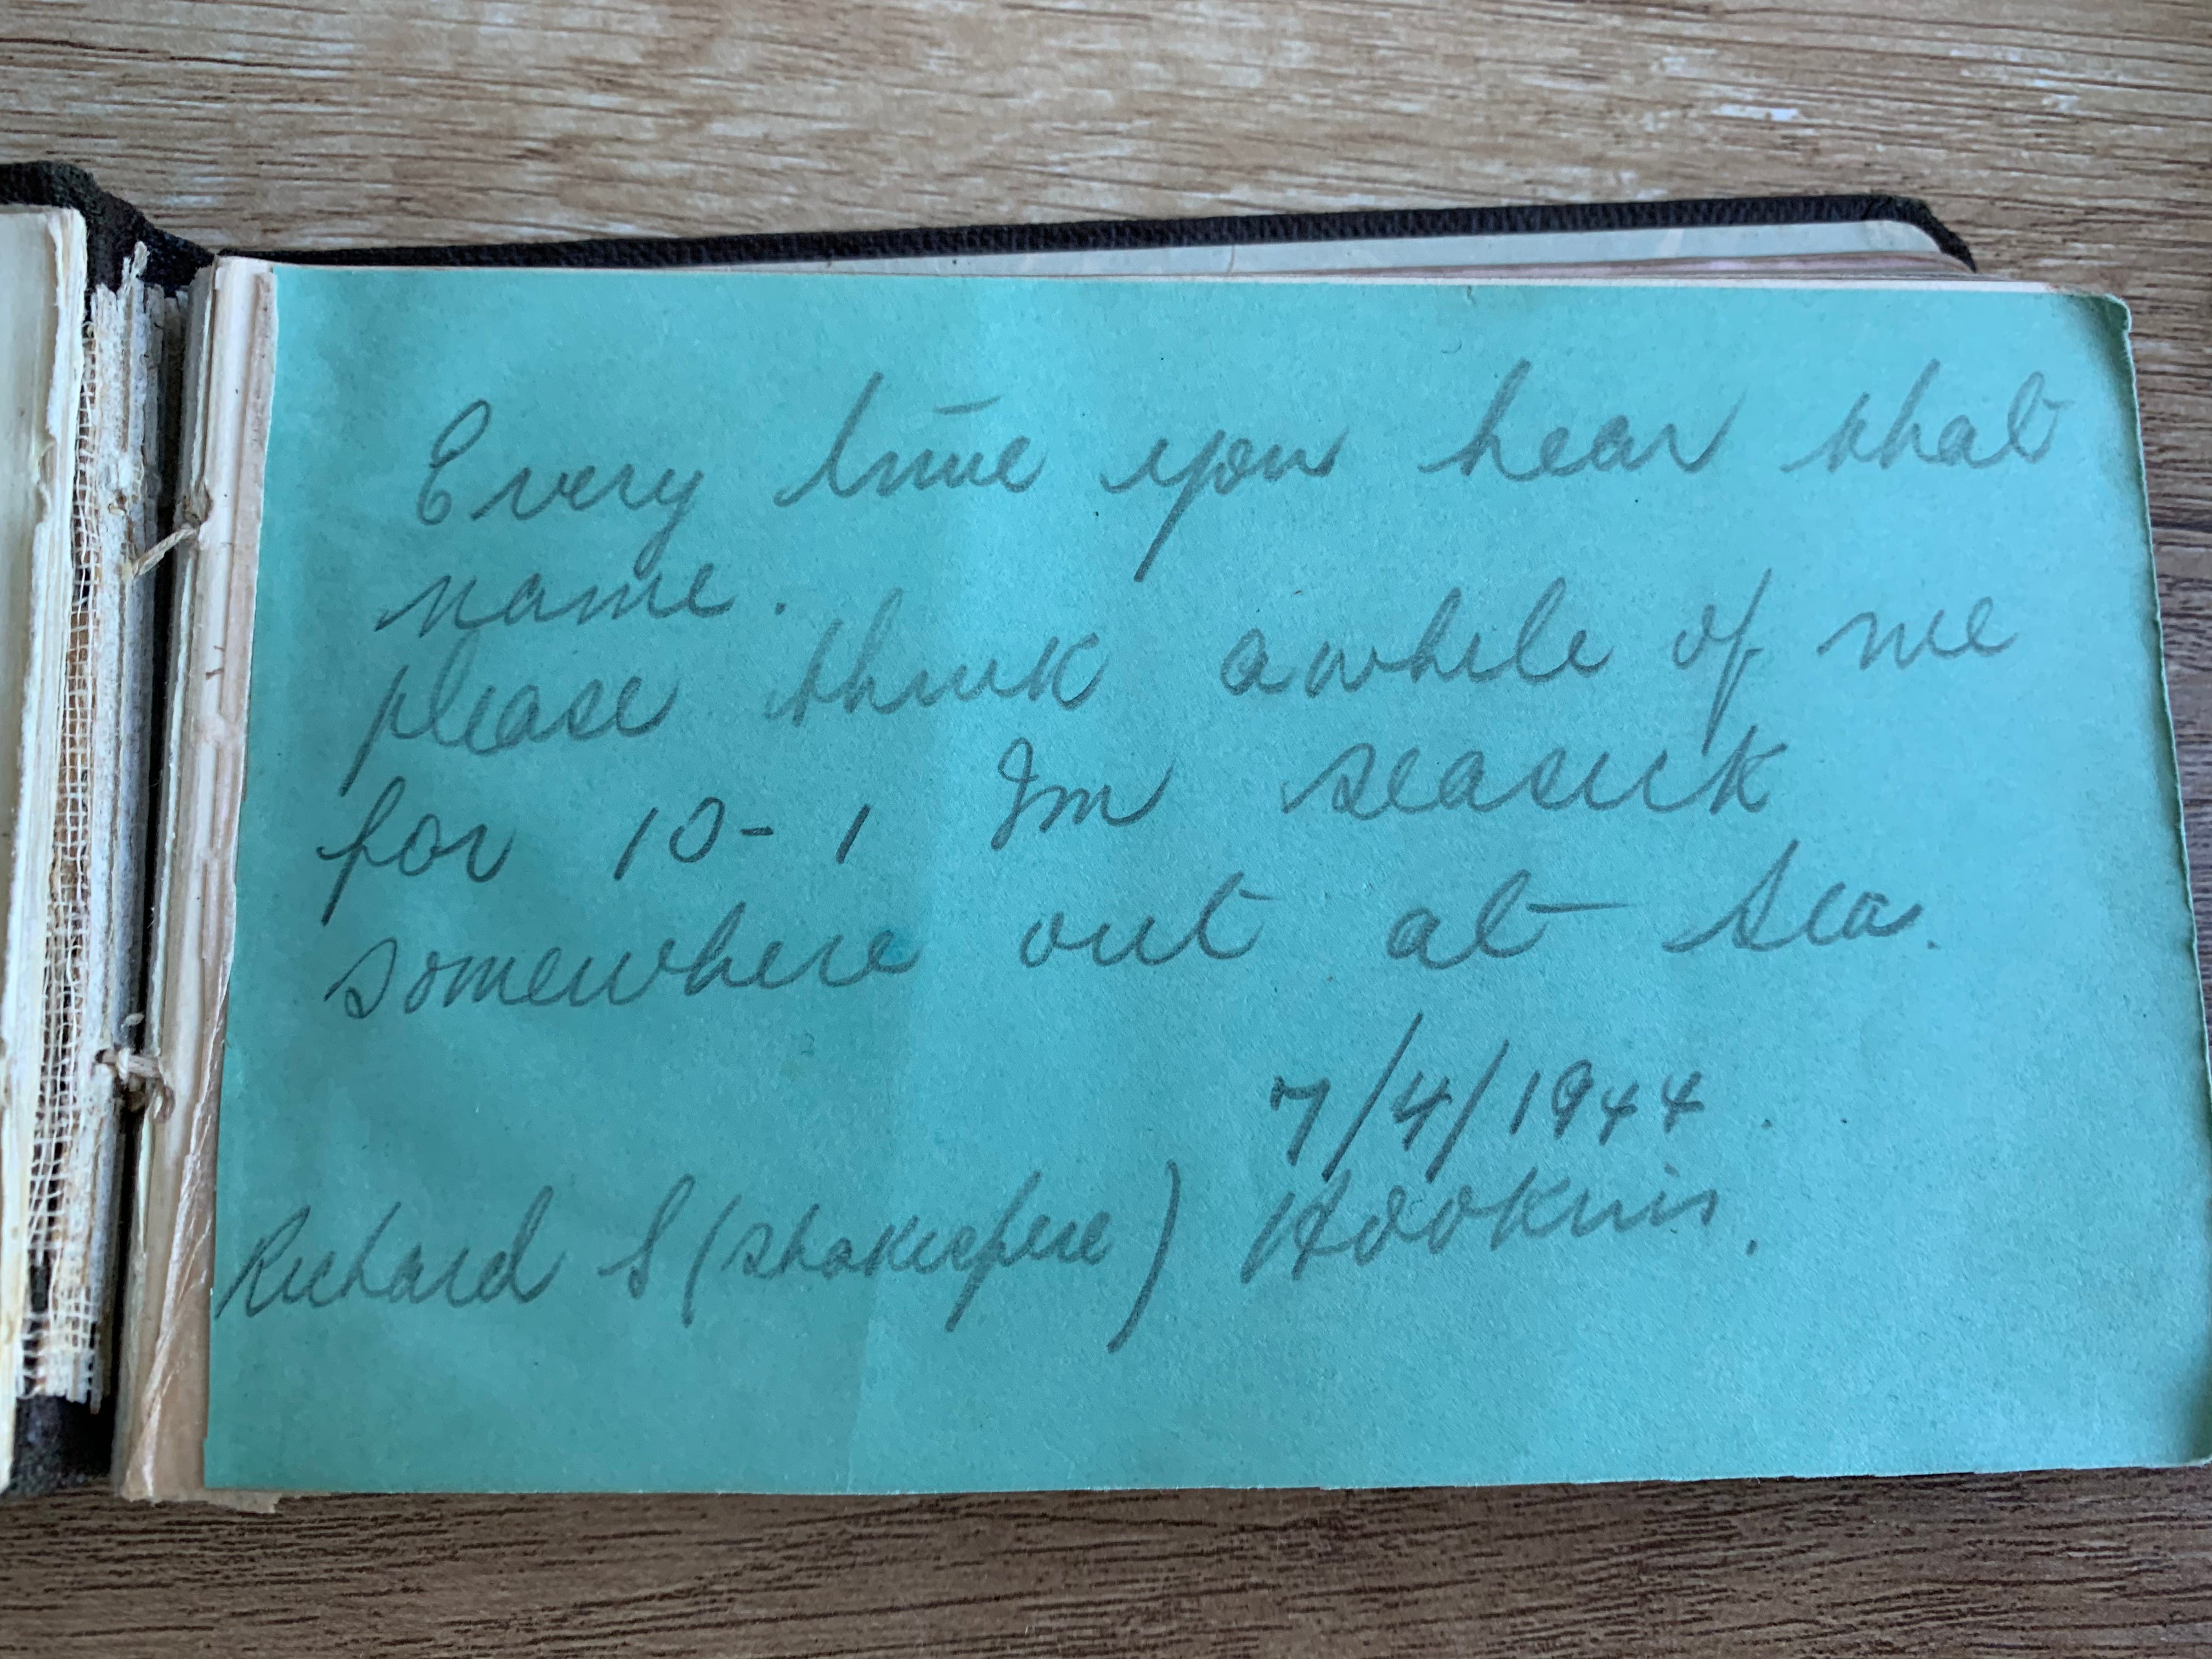 Every time you hear that
name.
please think awhile of me
for 10-1 Im seasick
somewhere out at sea.
7/4/1944.
Richard S (Shakespere) Hookins.